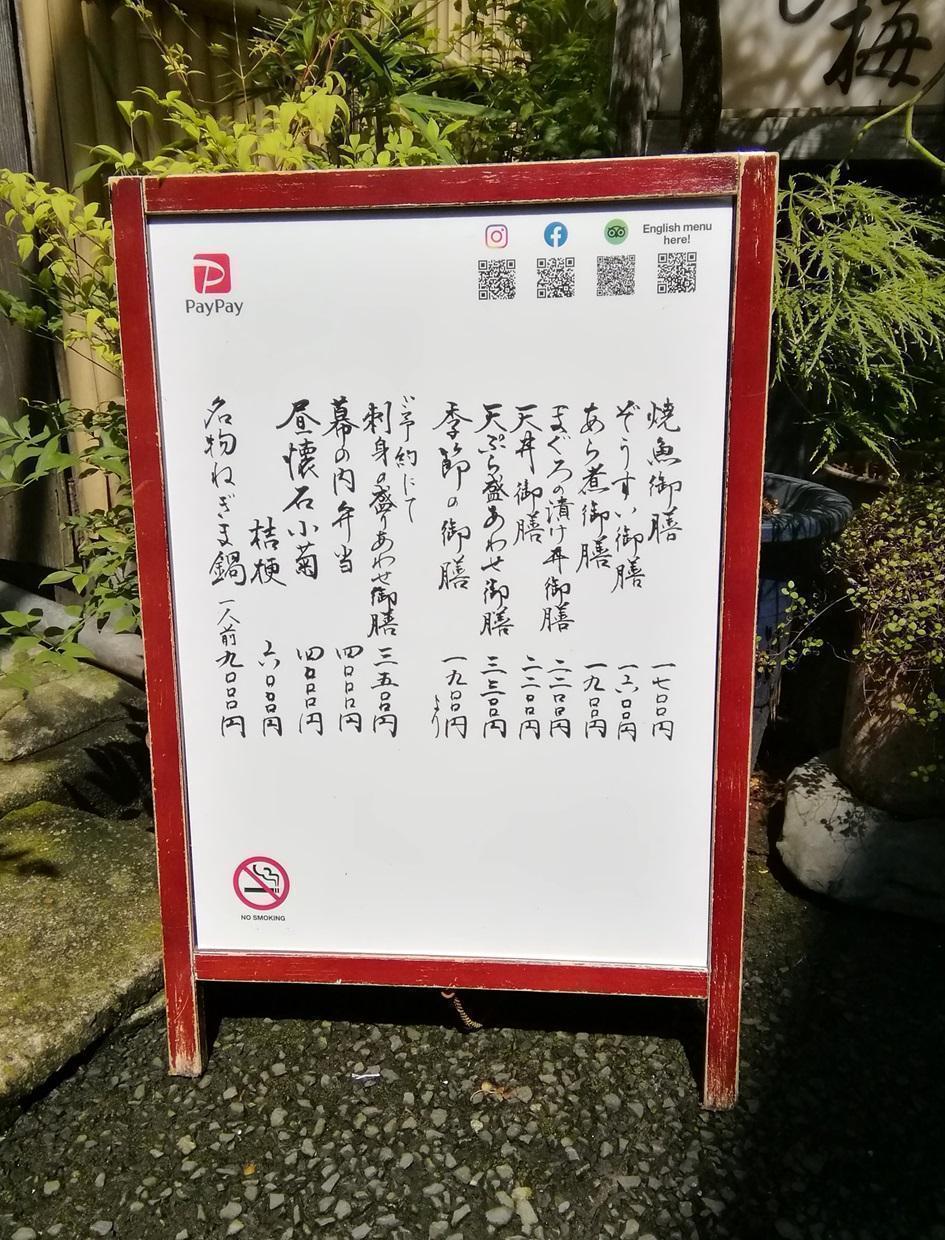 梅
PayPay
English menu
here!
焼魚御膳 一七〇〇円
ぞうすい御膳 一六〇〇円
あら煮御膳 一九〇〇円
まぐろの漬け丼御膳 二二〇〇円
天丼御膳 二二〇〇円
天ぷら盛あわせ御膳 三三〇〇円
季節の御膳 一九〇〇円より
ご予約にて
刺身の盛りあわせ御膳 三五〇〇円
幕の内弁当 四〇〇〇円
昼懐石小菊 四〇〇〇円
桔梗 六〇〇〇円
名物ねぎま鍋 一人前九〇〇〇円
NO SMOKING